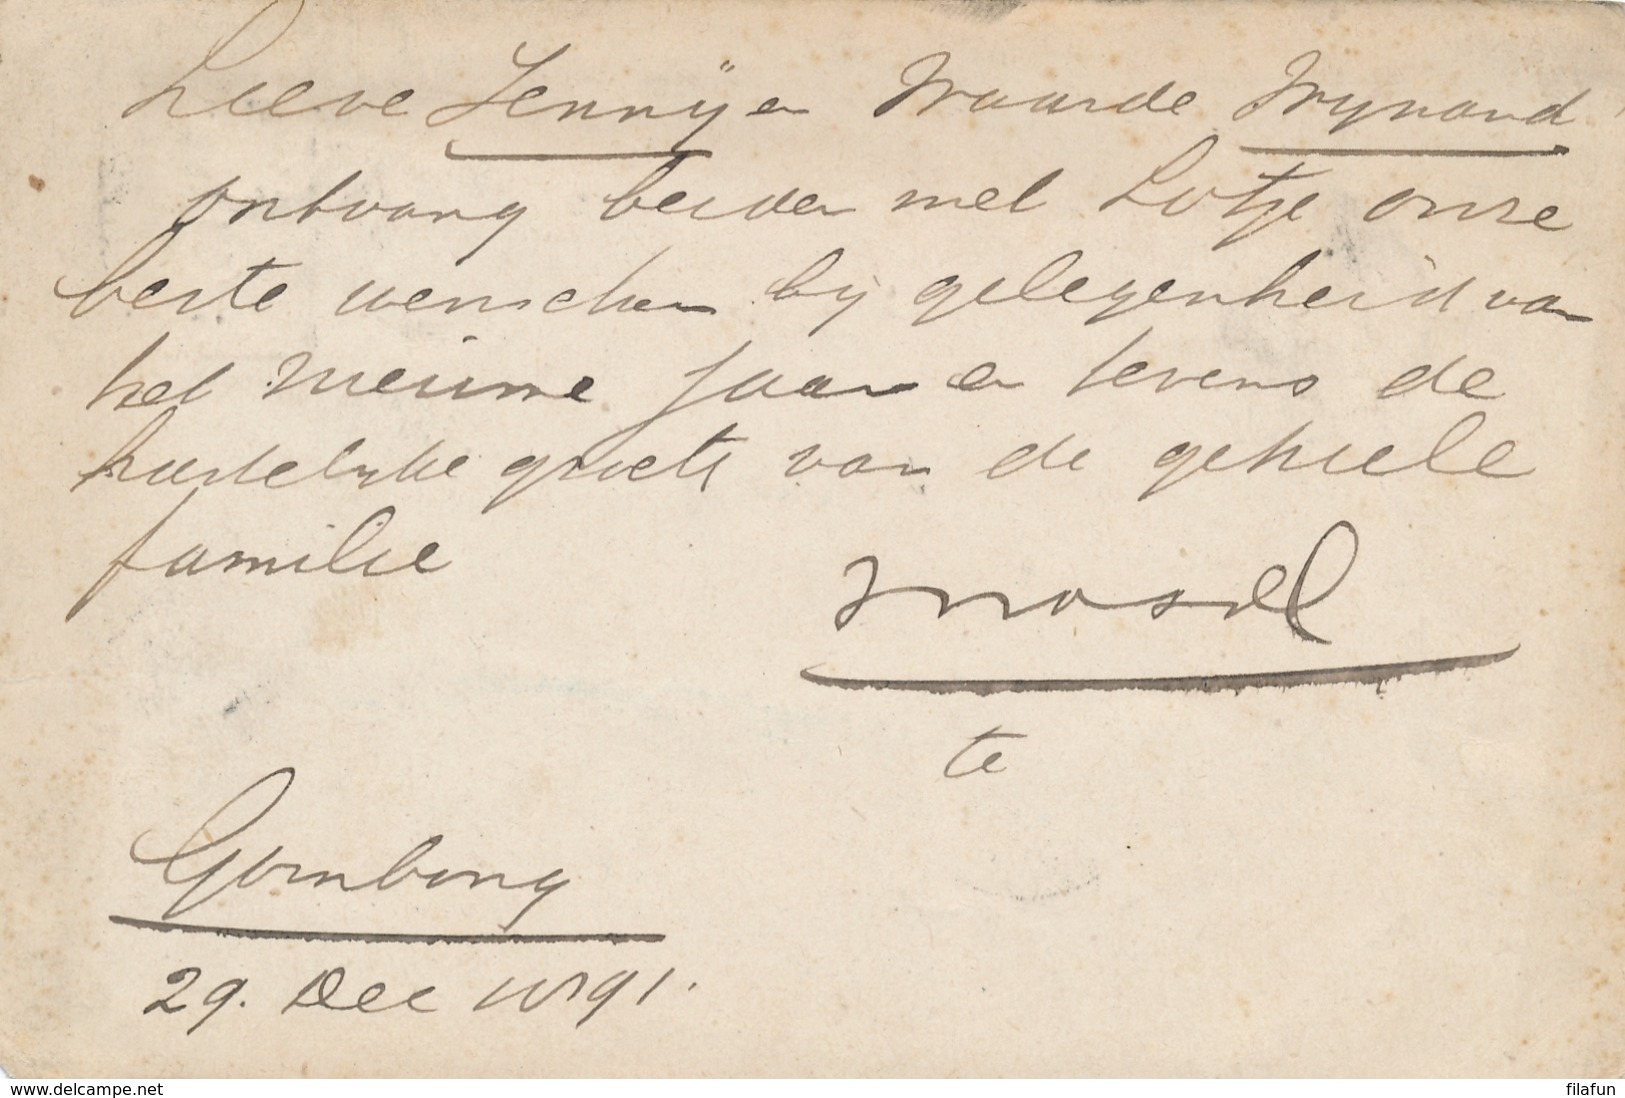 Lieve Jennÿ en Waarde Wynand
ontvang beiden met Lotje onze
beste wenschen bij gelegenheid van
het Nieuwe Jaar en tevens de
hartelijke groete van de geheele
familie
te
Gombong
29. Dec 1891.
www.delcampe.net
filafun